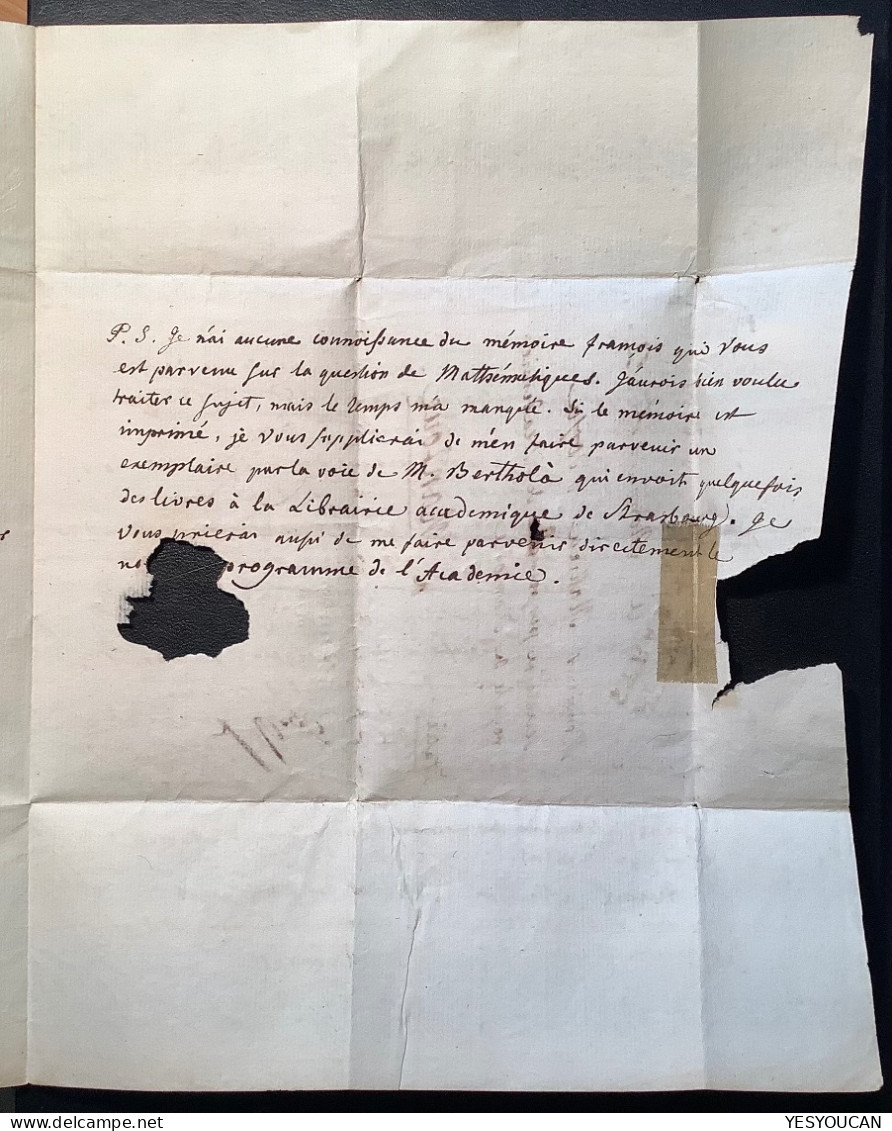 P. S. Je n'ai aucune connoissance du mémoire franιois qui vous
est parvenu sur la question de Mathématiques. J'aurois bien voulu
traiter ce sujet, mais le temps m'a manqué. Si le mémoire est
imprimé, je vous supplierai de m'en faire parvenir un
exemplaire par la voie de M. Bertholà qui envoit quelquefois
des livres à la Librairie académique de Strasbourg. Je
vous prierai aussi de me faire parvenir directement le
programme de l'Academie.
YESYOUCAN